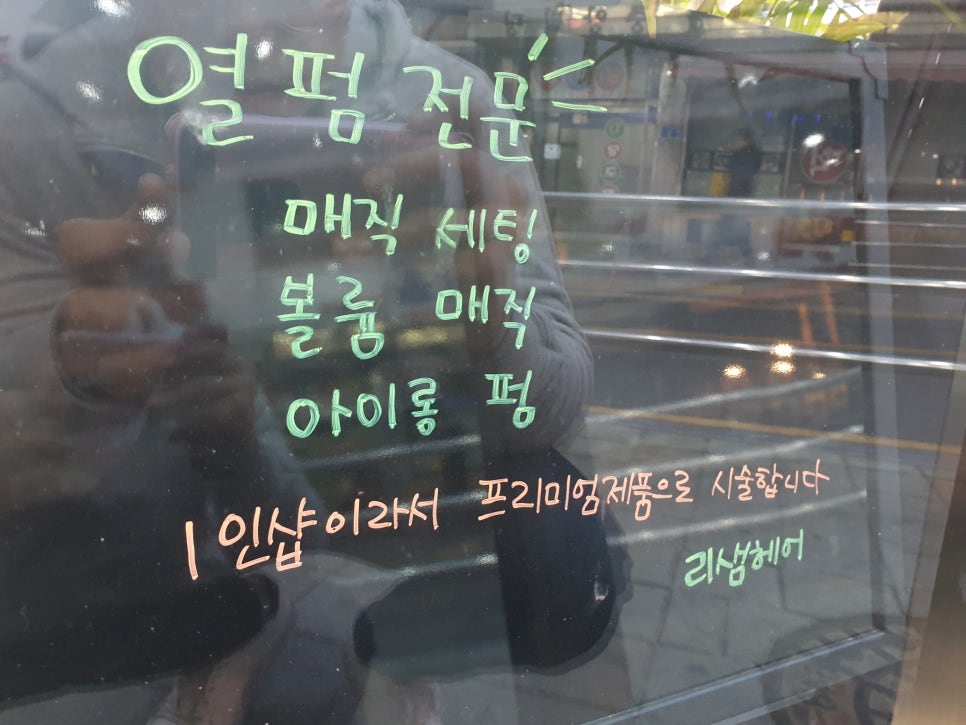 열펌 전문
매직 세팅
볼륨 매직
아이롱 펌
1인샵이라서 프리미엄제품으로 시술합니다
리샘헤어